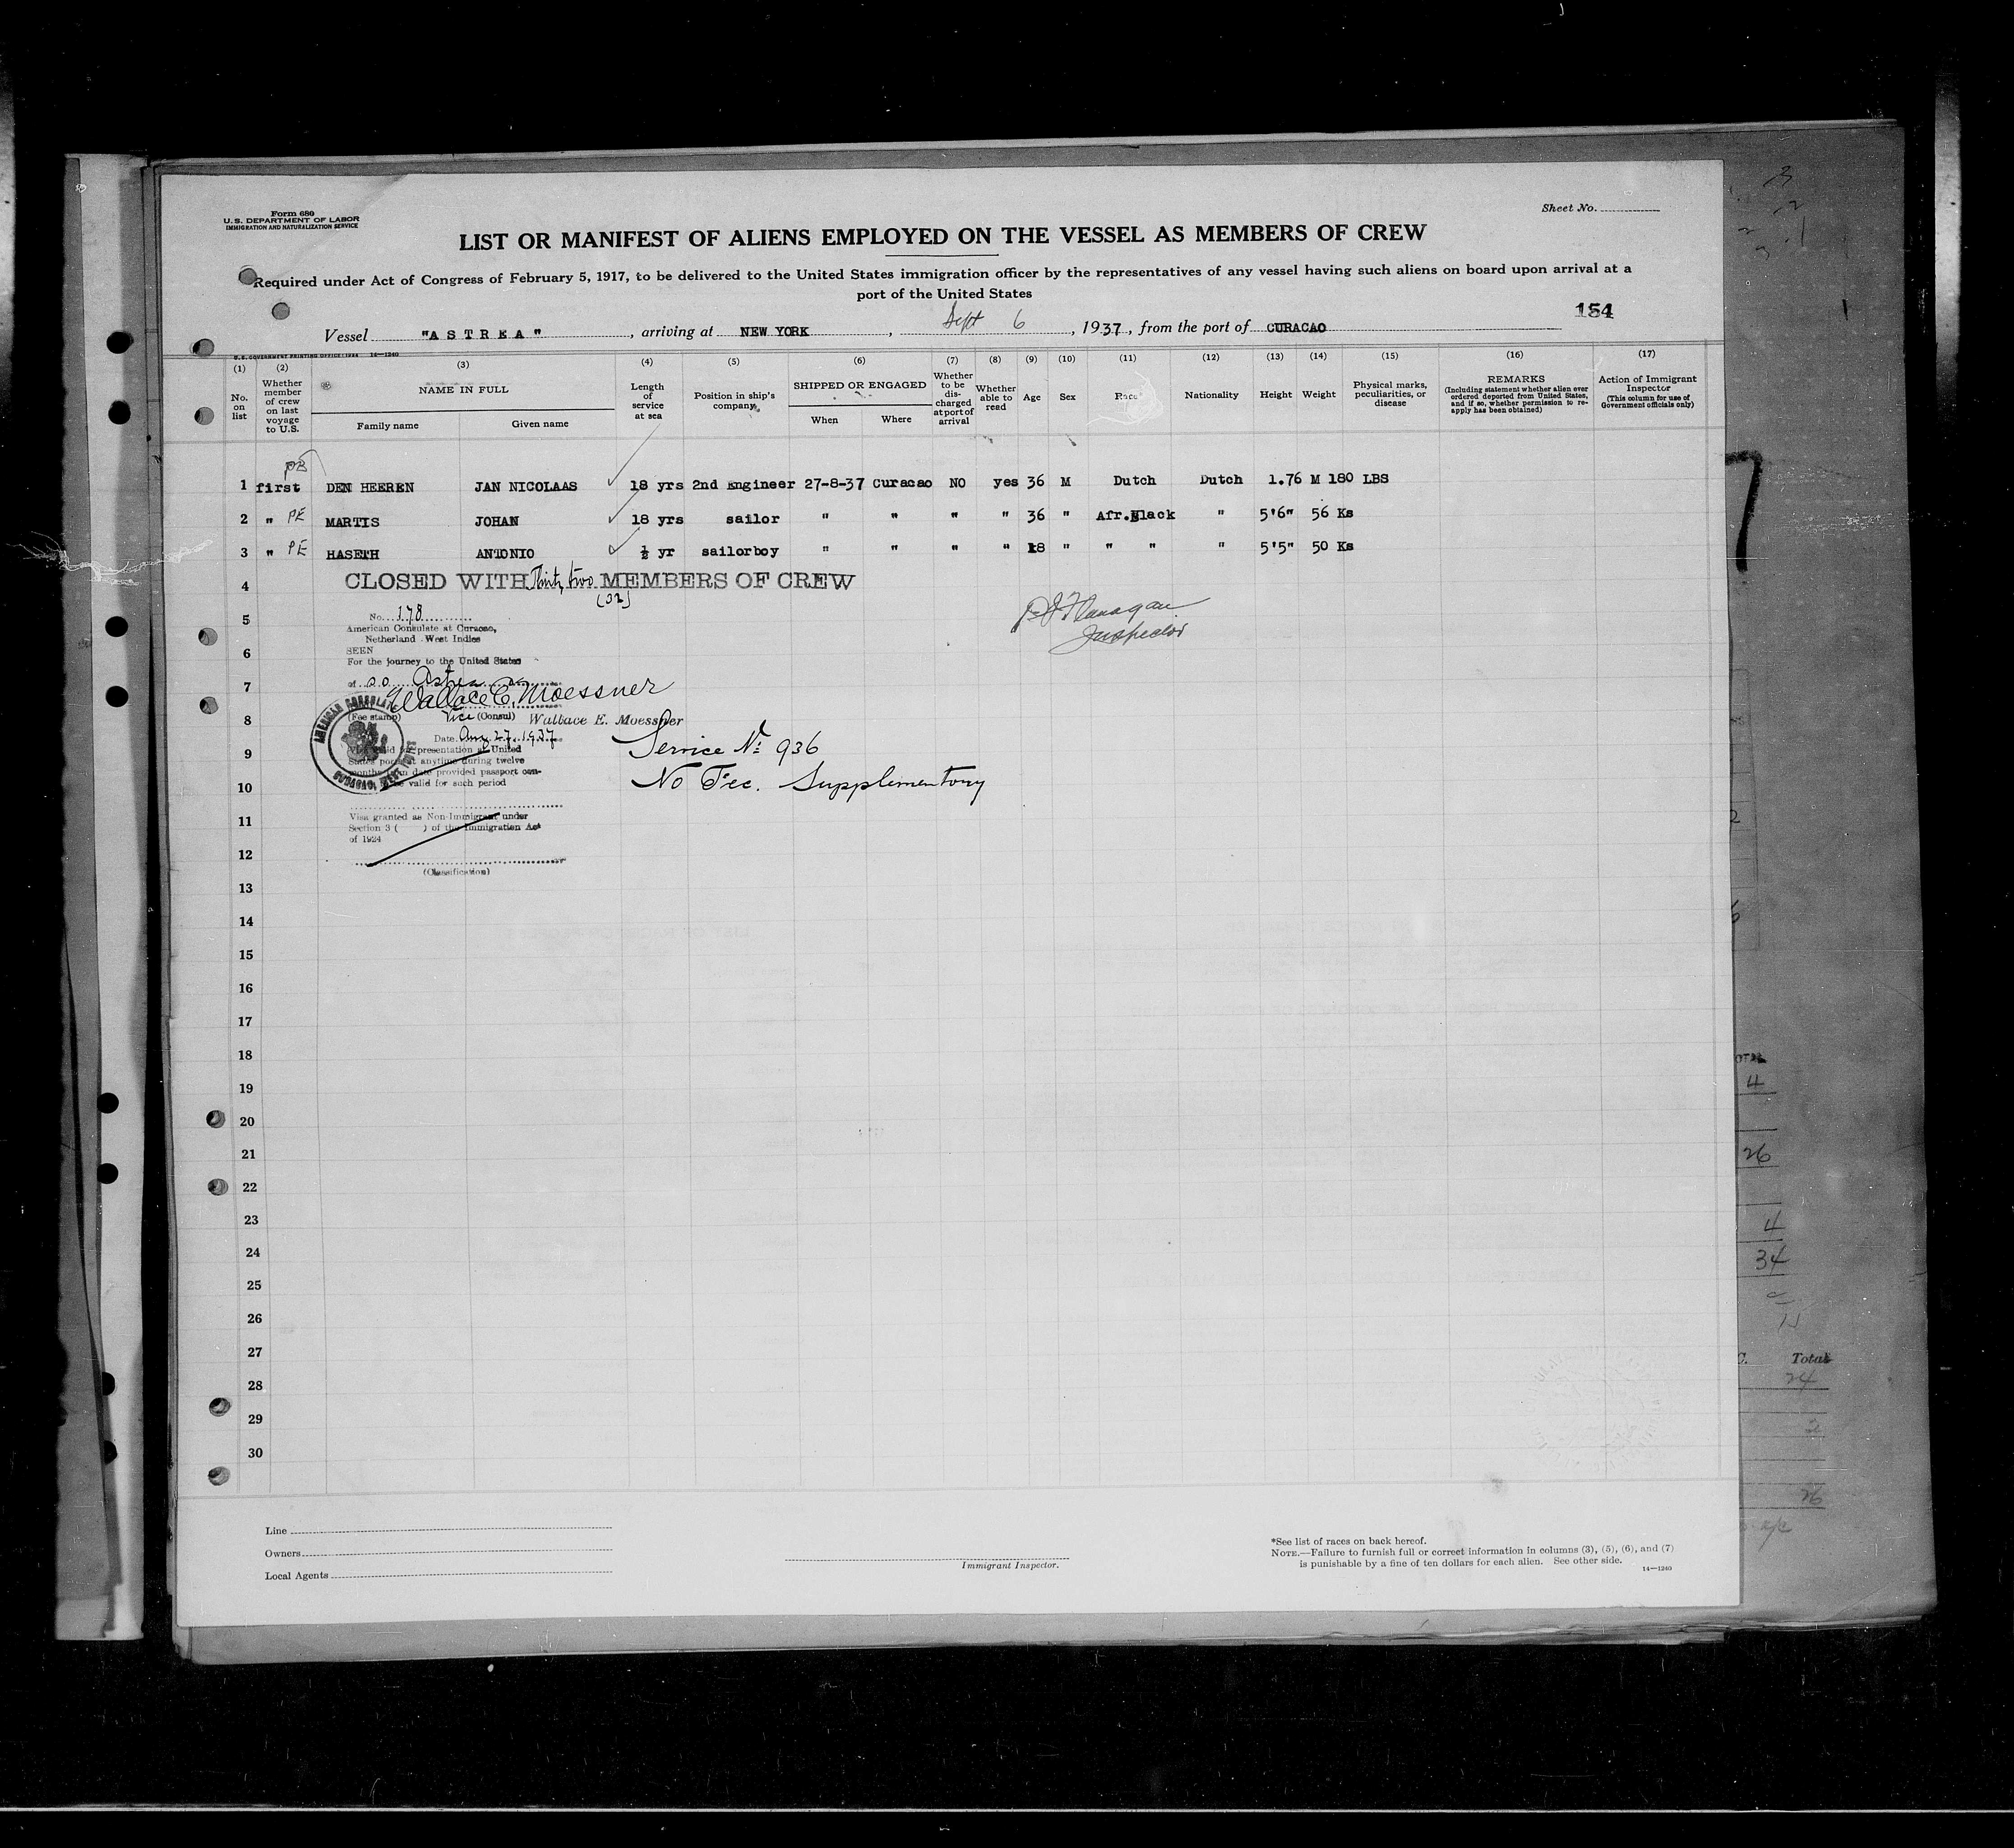 Form 680
U. S. DEPARTMENT OF LABOR
IMMIGRATION AND NATURALIZATION SERVICE
Sheet No.
LIST OR MANIFEST OF ALIENS EMPLOYED ON THE VESSEL AS MEMBERS OF CREW
Required under Act of Congress of February 5, 1917, to be delivered to the United States immigration officer by the representatives of any vessel having such aliens on board upon arrival at a
port of the United States
154
Vessel "A S T R E A" , arriving at NEW YORK , Sept 6 , 1937 , from the port of CURACAO
U. S. GOVERNMENT PRINTING OFFICE: 1934 14—1240
(1) (2) (3) (4) (5) (6) (7) (8) (9) (10) (11) (12) (13) (14) (15) (16) (17)
No. on list
Whether member of crew on last voyage to U.S.
NAME IN FULL
Family name Given name
Length of service at sea
Position in ship's company
SHIPPED OR ENGAGED
When Where
Whether to be discharged at port of arrival
Whether able to read
Age
Sex
Race*
Nationality
Height
Weight
Physical marks, peculiarities, or disease
REMARKS
(Including statement whether alien ever ordered deported from United States, and if so, whether permission to reapply has been obtained)
Action of Immigrant Inspector
(This column for use of Government officials only)
PB
1 first DEN HEEREN JAN NICOLAAS 18 yrs 2nd Engineer 27-8-37 Curacao NO yes 36 M Dutch Dutch 1.76 M 180 LBS
2 " PE MARTIS JOHAN 18 yrs sailor " " " " 36 " Afr.Black " 5'6" 56 Ks
3 " PE HASETH ANTONIO ½ yr sailorboy " " " " 18 " " " " 5'5" 50 Ks
4 CLOSED WITH Thirty two MEMBERS OF CREW
(32)
5 No. 178
American Consulate at Curacao,
Netherland West Indies
P J Flanagan
Inspector
6 SEEN
For the journey to the United States
7 of s.s. Astrea
Wallace E. Moessner
8 (Fee stamp) Vice (Consul) Wallace E. Moessner
AMERICAN CONSULATE
CURACAO, WEST INDIES
Date Aug 27, 1937
9 Visa valid for presentation at United
States ports at anytime during twelve
months from date provided passport con-
10 valid for such period
Service No 936
No Fee. Supplementary
11 Visa granted as Non-Immigrant under
Section 3 ( ) of the Immigration Act
of 1924
12
(Classification)
13
14
15
16
17
18
19
20
21
22
23
24
25
26
27
28
29
30
Line
Owners
Local Agents
Immigrant Inspector.
*See list of races on back hereof.
NOTE.—Failure to furnish full or correct information in columns (3), (5), (6), and (7)
is punishable by a fine of ten dollars for each alien. See other side.
14—1240
4
26
4
34
Total
24
2
26